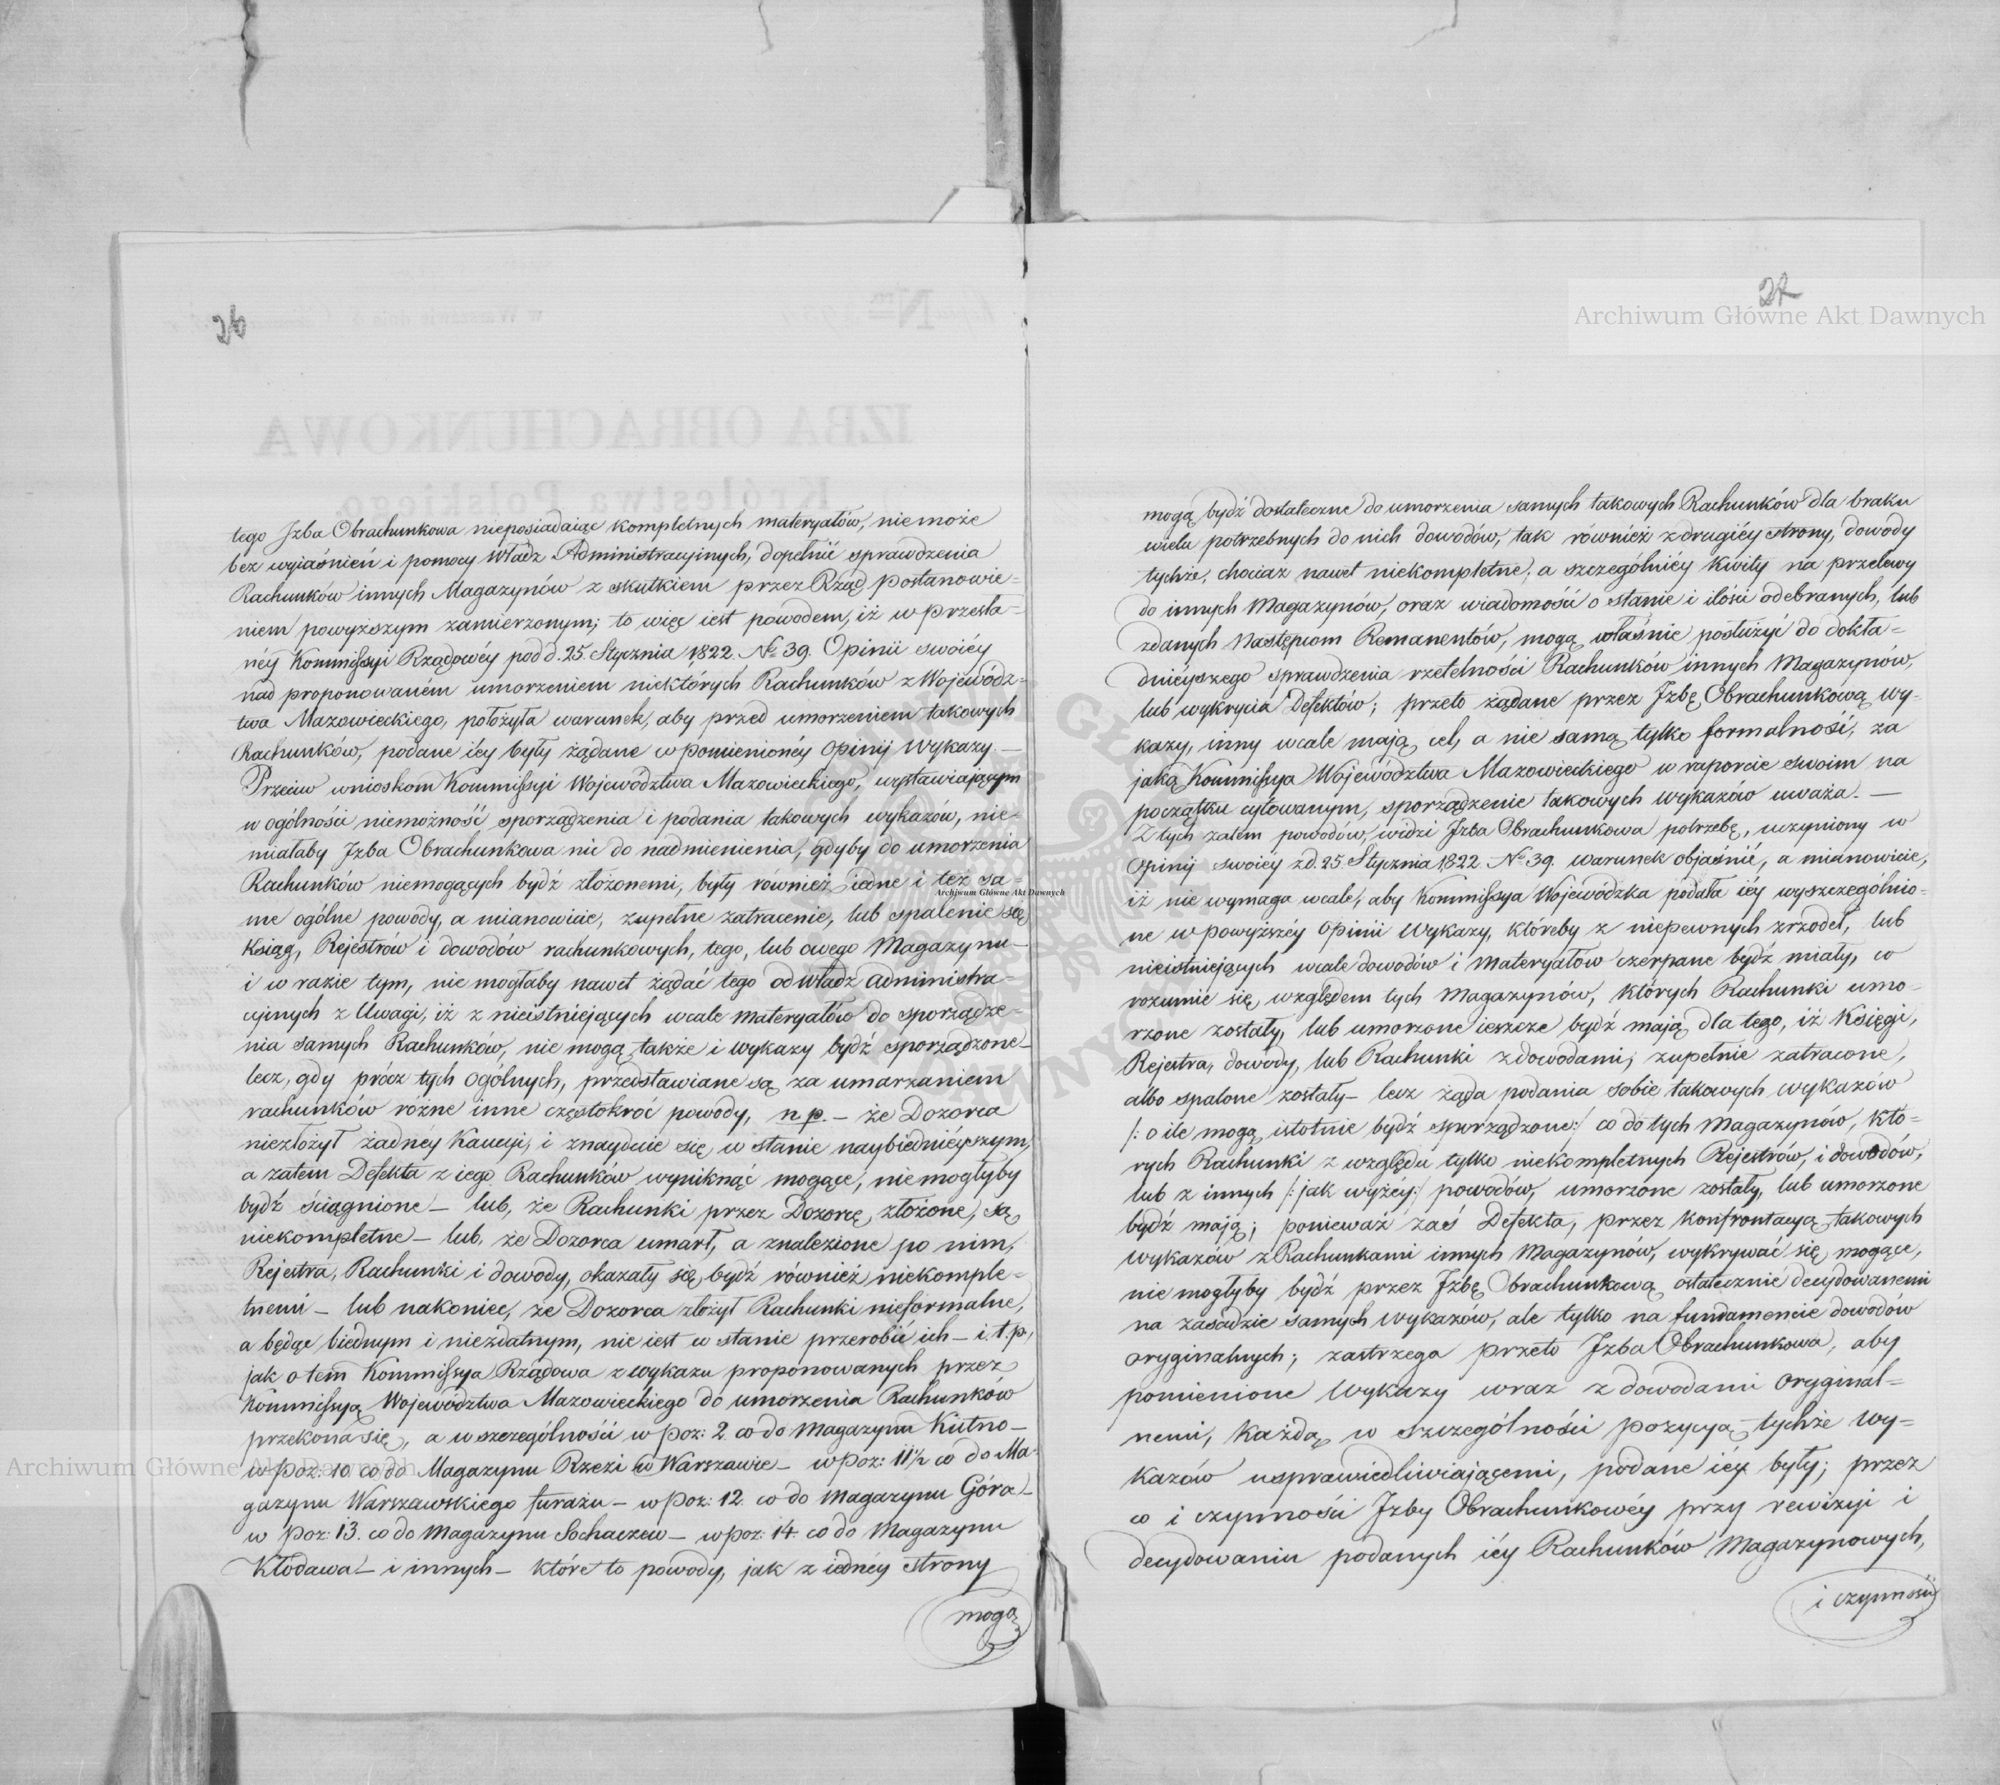 26
tego Jzba Obrachunkowa nieposiadaiąc kompletnych materyałów, nie może
bez wyiaśnień i pomocy Władz Administracyjnych, dopełnić sprawdzenia
Rachunków innych Magazynów z skutkiem przez Rząd postanowie=
niem powyższym zamierzonym; to więc iest powodem, iż w przesła=
néy Kommissyi Rządowéy pod d. 25. Stycznia 1822. No 39. Opinii swoiéy
nad proponowaném umorzeniem niektórych Rachunków z Wojewódz=
twa Mazowieckiego, położyła warunek, aby przed umorzeniem takowych
Rachunków, podane iéy były żądane w pomienionéy Opinij Wykazy. —
Przeciw wnioskom Kommissyi Województwa Mazowieckiego, wystawiającym
w ogólności niemożność sporządzenia i podania takowych wykazów, nie=
miałaby Jzba Obrachunkowa nic do nadmienienia, gdyby do umorzenia
Rachunków niemogących bydź złożonemi, były również iedne i też sa=
me ogólne powody, a mianowicie, zupełne zatracenie, lub spalenie się
Ksiąg, Rejestrów i dowodów rachunkowych, tego, lub owego Magazynu—
i w razie tym, nie mogłaby nawet żądać tego od Władz Administra=
cyjnych z Uwagi, iż z nieistniejących wcale materyałów do sporządze=
nia samych Rachunków, nie mogą także i wykazy bydź sporządzone—
lecz, gdy prócz tych ogólnych, przedstawiane są za umarzaniem
rachunków różne inne częstokroć powody, np. — że Dozorca
niezłożył żadnéy Kaucyi, i znayduie się w stanie naybiednieyszym,
a zatem Defekta z iego Rachunków wyniknąć mogące, nie mogłyby
bydź ściągnione — lub, że Rachunki przez Dozorcę złożone, są
niekompletne — lub, że Dozorca umarł, a znalezione po nim,
Rejestra, Rachunki i dowody, okazały się bydź również niekomple=
tnemi — lub nakoniec, że Dozorca złożył Rachunki nieformalne,
a będąc biednym i niezdatnym, nie iest w stanie przerobić ich — i. t. p,
jak o tem Kommissya Rządowa z wykazu proponowanych przez
Kommissyą Województwa Mazowieckiego do umorzenia Rachunków
przekona się, a w szczególności w poz: 2. co do Magazynu Kutno —
w poz: 10 co do Magazynu Rzezi w Warszawie — w poz: 11½ co do Ma=
gazynu Warszawskiego furażu — w poz: 12. co do Magazynu Góra —
w poz: 13. co do Magazynu Sochaczew — w poz: 14. co do Magazynu
Kłodawa — i innych — które to powody, jak z iednéy strony
mogą
27
mogą bydź dostateczne do umorzenia samych takowych Rachunków dla braku
wielu potrzebnych do nich dowodów, tak również z drugiéy strony, dowody
tychże, chociaz nawet niekompletne, a szczególniéy Kwity na przelewy
do innych Magazynów, oraz wiadomości o stanie i ilości odebranych, lub
zdanych Następcom Remanentów, mogą właśnie posłużyć do dokła=
dniéyszego sprawdzenia rzetelności Rachunków innych Magazynów,
lub wykrycia Defektów; przeto żądane przez Jzbę Obrachunkową Wy=
kazy, inny wcale mają cel, a nie samą tylko formalność, za
jaką Kommissya Województwa Mazowieckiego w raporcie swoim na
początku cytowanym, sporządzenie takowych wykazów uważa. —
Z tych zatem powodów, widzi Jzba Obrachunkowa potrzebę, uczyniony w
Opinij swoiey z d. 25. Stycznia 1822. No 39. warunek objaśnić, a mianowicie,
iż nie wymaga wcale, aby Kommissya Wojewódzka podała iéy wyszczególnio=
ne w powyższéy Opinii Wykazy, któreby z niepewnych zrzodeł, lub
nieistniejących wcale dowodów i materyałów czerpane bydź miały, co
rozumie się względem tych Magazynów, których Rachunki umo=
rzone zostały, lub umorzone ieszcze bydź mają dla tego, iż Księgi,
Rejestra, dowody, lub Rachunki z dowodami, zupełnie zatracone,
albo spalone zostały — lecz żąda podania sobie takowych wykazów
/: o ile mogą istotnie bydź sporządzone :/ co do tych Magazynów, któ=
rych Rachunki z względu tylko niekompletnych Rejestrów, i dowodów,
lub z innych /: jak wyżéy :/ powodów, umorzone zostały, lub umorzone
bydź mają; ponieważ zaś Defekta, przez Konfrontacyą takowych
Wykazów z Rachunkami innych Magazynów, wykrywać się mogące,
nie mogłyby bydź przez Jzbę Obrachunkową ostatecznie decydowanemi
na zasadzie samych Wykazów, ale tylko na fundamencie dowodów
oryginalnych; zastrzega przeto Jzba Obrachunkowa, aby
pomienione Wykazy wraz z dowodami Oryginal=
nemi, każdą w szczególności pozycyą tychże Wy=
kazów usprawiedliwiającemi, podane iéy były; przez
co i czynności Jzby Obrachunkowéy przy rewizyi i
decydowaniu podanych iéy Rachunków Magazynowych,
i czynności
Archiwum Główne Akt Dawnych
Archiwum Główne Akt Dawnych
Archiwum Główne Akt Dawnych